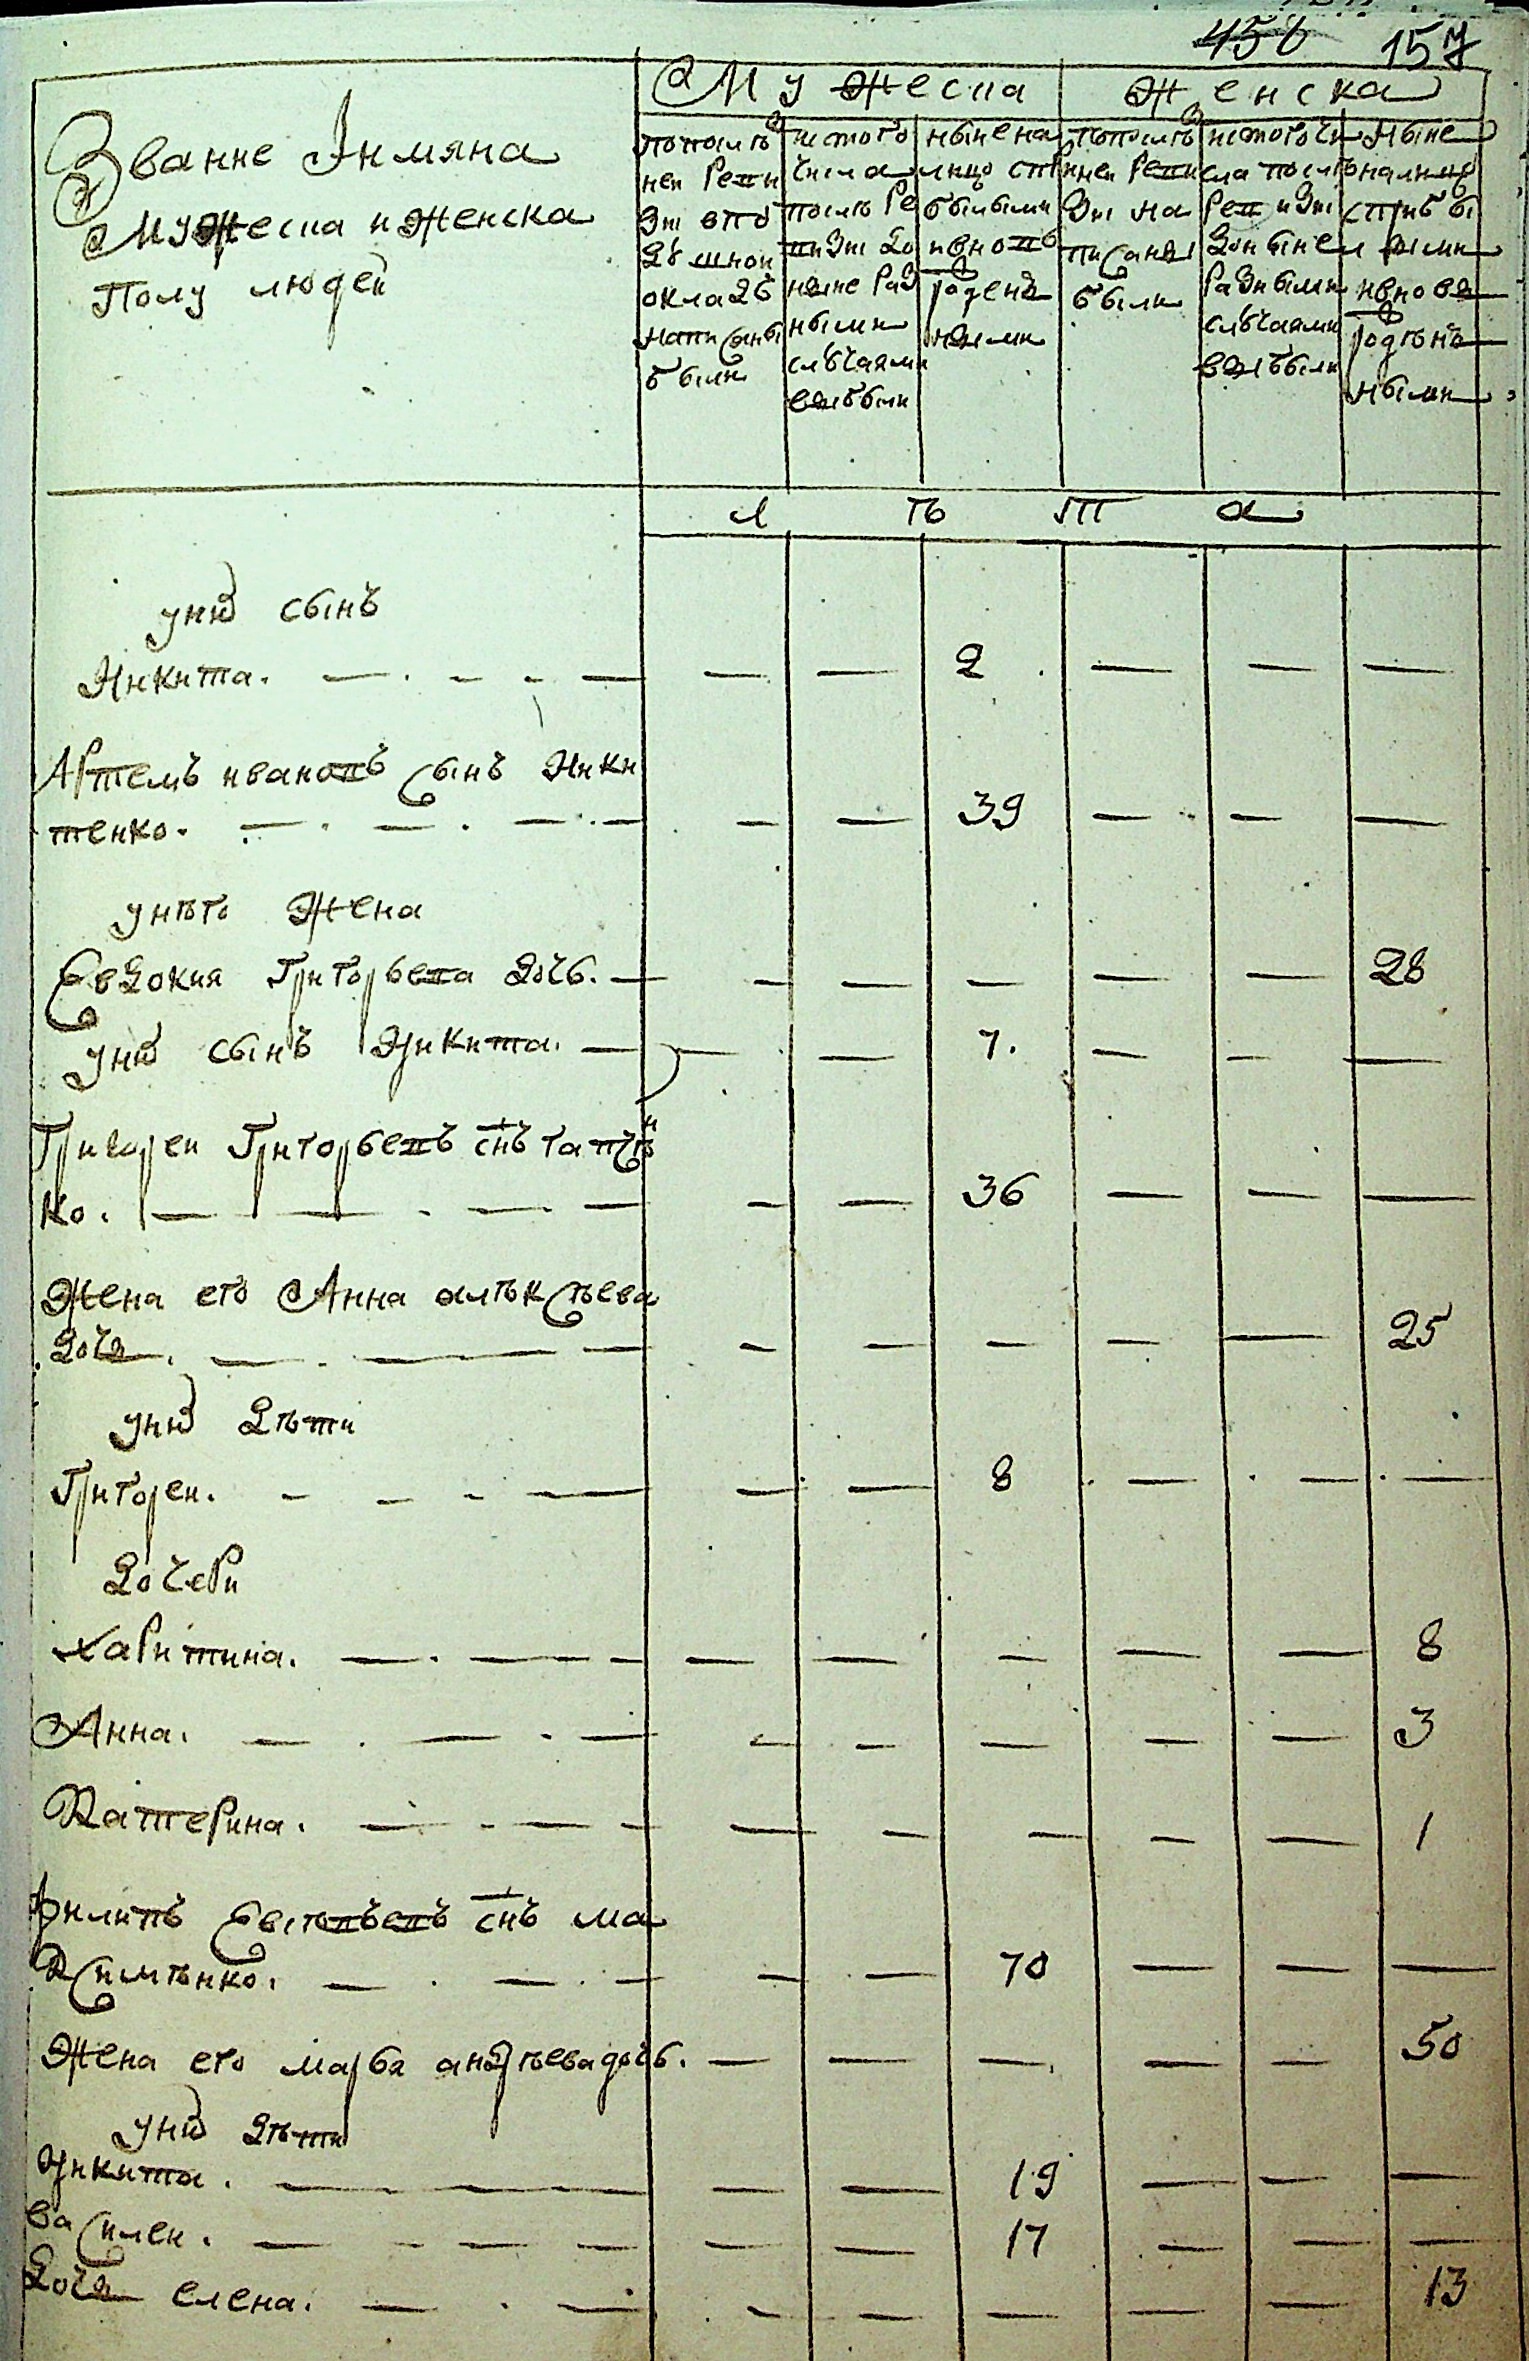 456 157
Мужеска Женска
Звание Имяна
Мужеска и Женска
Полу людей
попослѣд
ней реви
зіи впо
душной
окладъ
написаны
были
истого
числа
послѣ ре
визіи до
ныне раз
ными
случаями
выбыли
ныне на
лицо спри
былыми
ивновь
рожденъ
ными
попослѣд
ней реви
зіи на
писаны
были
истого чи
сла послѣ
ревизіи
доныне
разными
случаями
выбыли
Ныне
налицо
сприбы
лыми
ивновь
рожденъ
ными
л ѣ т а
уних сынъ
Никита. 2
Артемъ ивановъ сынъ Ники
тенко. 39
унего жена
Евдокия Григорьева дочь. 28
уних сынъ Никита. 7.
Григорей Григорьевъ снъ
ко. 36
Жена его Анна алѣксѣева
дочь. 25
уних дѣти
Григорей. 8
дочери
Харитина. 8
Анна. 3
Катерина. 1
Филипъ снъ ма
ксимѣнко. 70
Жена его марфа андрѣева дочь. 50
уних дѣти
Никита. 19
василей. 17
дочь елена. 13